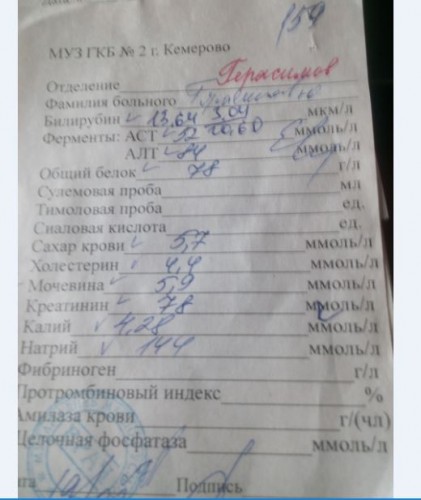 159
МУЗ ГКБ № 2 г. Кемерово
Отделение Герасимов
Фамилия больного
Билирубин 13,64 3,04 10,60 мкм/л
Ферменты: АСТ 52 ммоль/л
АЛТ 84 ммоль/л
Общий белок 78 г/л
Сулемовая проба мл
Тимоловая проба ед.
Сиаловая кислота ед.
Сахар крови 5,7 ммоль/л
Холестерин 4,4 ммоль/л
Мочевина 5,9 ммоль/л
Креатинин 78 ммоль/л
Калий 4,28 ммоль/л
Натрий 144 ммоль/л
Фибриноген г/л
Протромбиновый индекс %
Амилаза крови г/(чл)
Щелочная фосфатаза ммоль/л
Подпись